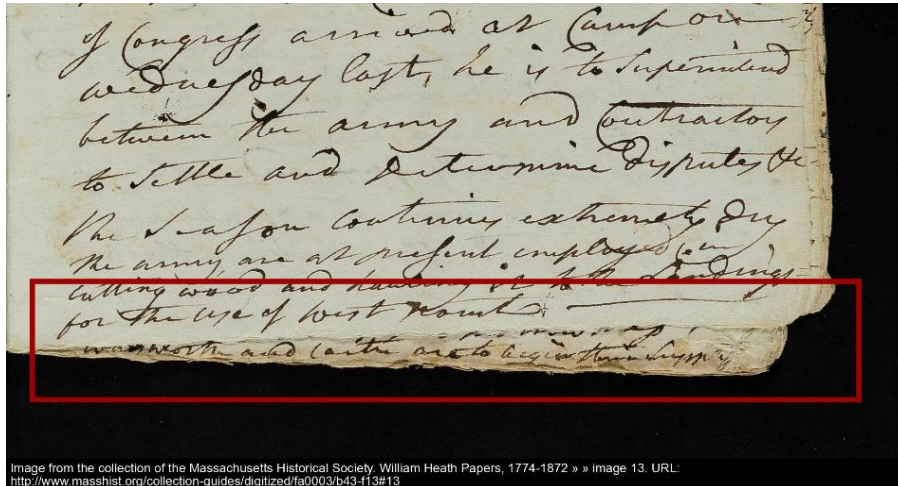 of Congress arrived at Camp on
wednesday last, he is to Superintend
between the army and Contractors
to Settle and Determine Disputes &c
the Season Continues extremely dry
the army are at present employed in
cutting wood and hauling it to the Landings
for the use of West Point
wadsworth and Carter are to begin their Supply
Image from the collection of the Massachusetts Historical Society. William Heath Papers, 1774-1872 » » image 13. URL:
http://www.masshist.org/collection-guides/digitized/fa0003/b43-f13#13